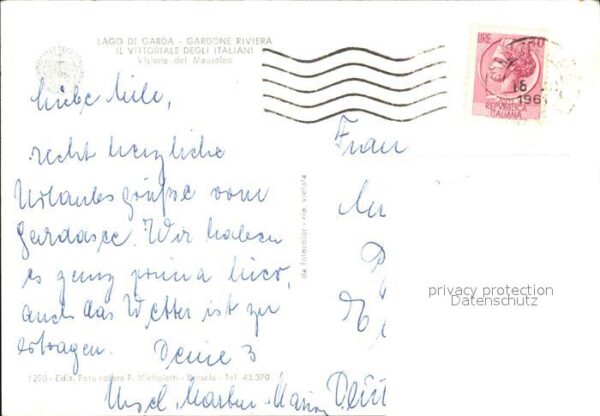 LAGO DI GARDA - GARDONE RIVIERA
IL VITTORIALE DEGLI ITALIANI
Visione del Mausoleo
LIRE
REPVBBLICA
ITALIANA
18
196
Liebe
recht herzliche
Urlaubsgrüße vom
Gardasee. Wir haben
es ganz prima hier,
auch das Wetter ist zu
ertragen. Deine 3
Frau
da fotocolor - rip. vietata
privacy protection
Datenschutz
1290 - Ediz. Foto colore F. Michelotti - Brescia - Tel. 43.370